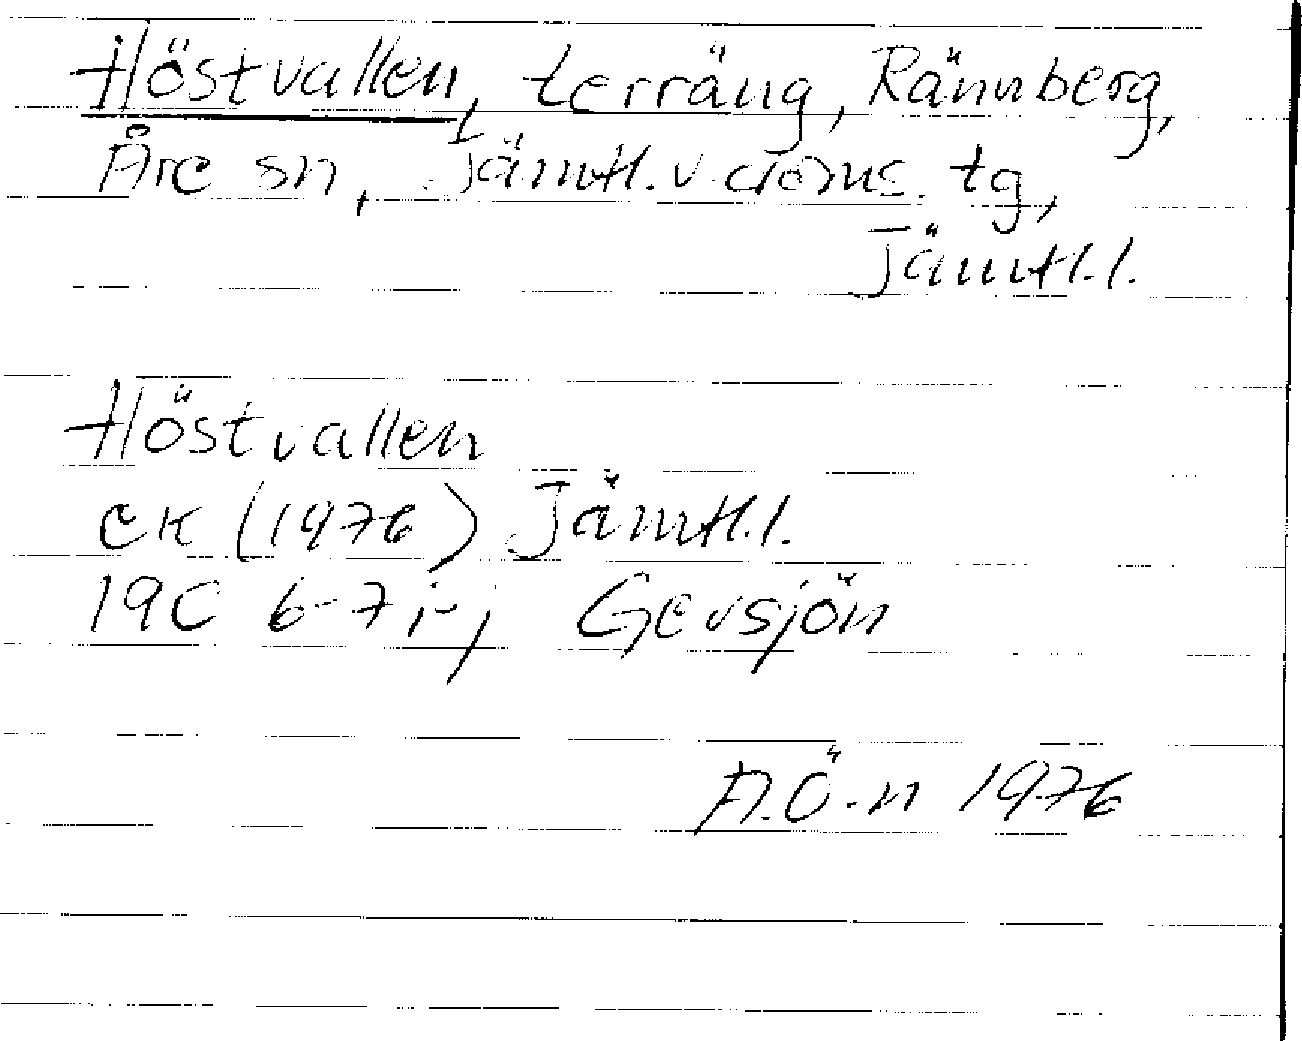 Höstvallen, terräng, Rännberg,
Åre sn, Jämtl. v. doms. tg,
Jämtl. l.
Höstvallen
ek (1976) Jämtl. l.
19C 6-7 i-j Gevsjön
A.Ö-n 1976